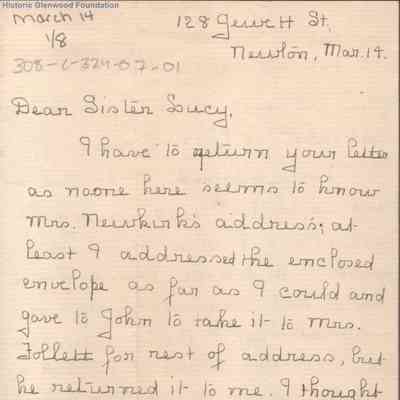 Historic Glenwood Foundation
March 14
1/8
308-C-324-07-01
128 Jewett St.
Newton, Mar. 14.
Dear Sister Lucy,
I have to return your letter
as noone here seems to know
Mrs. Newkirk's address; at
least I addressed the enclosed
envelope as far as I could and
gave to John to take it to Mrs.
Follett for rest of address, but
he returned it to me. I thought